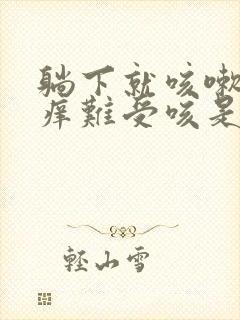 躺下就咳嗽
痒難受咳是
輕山雪